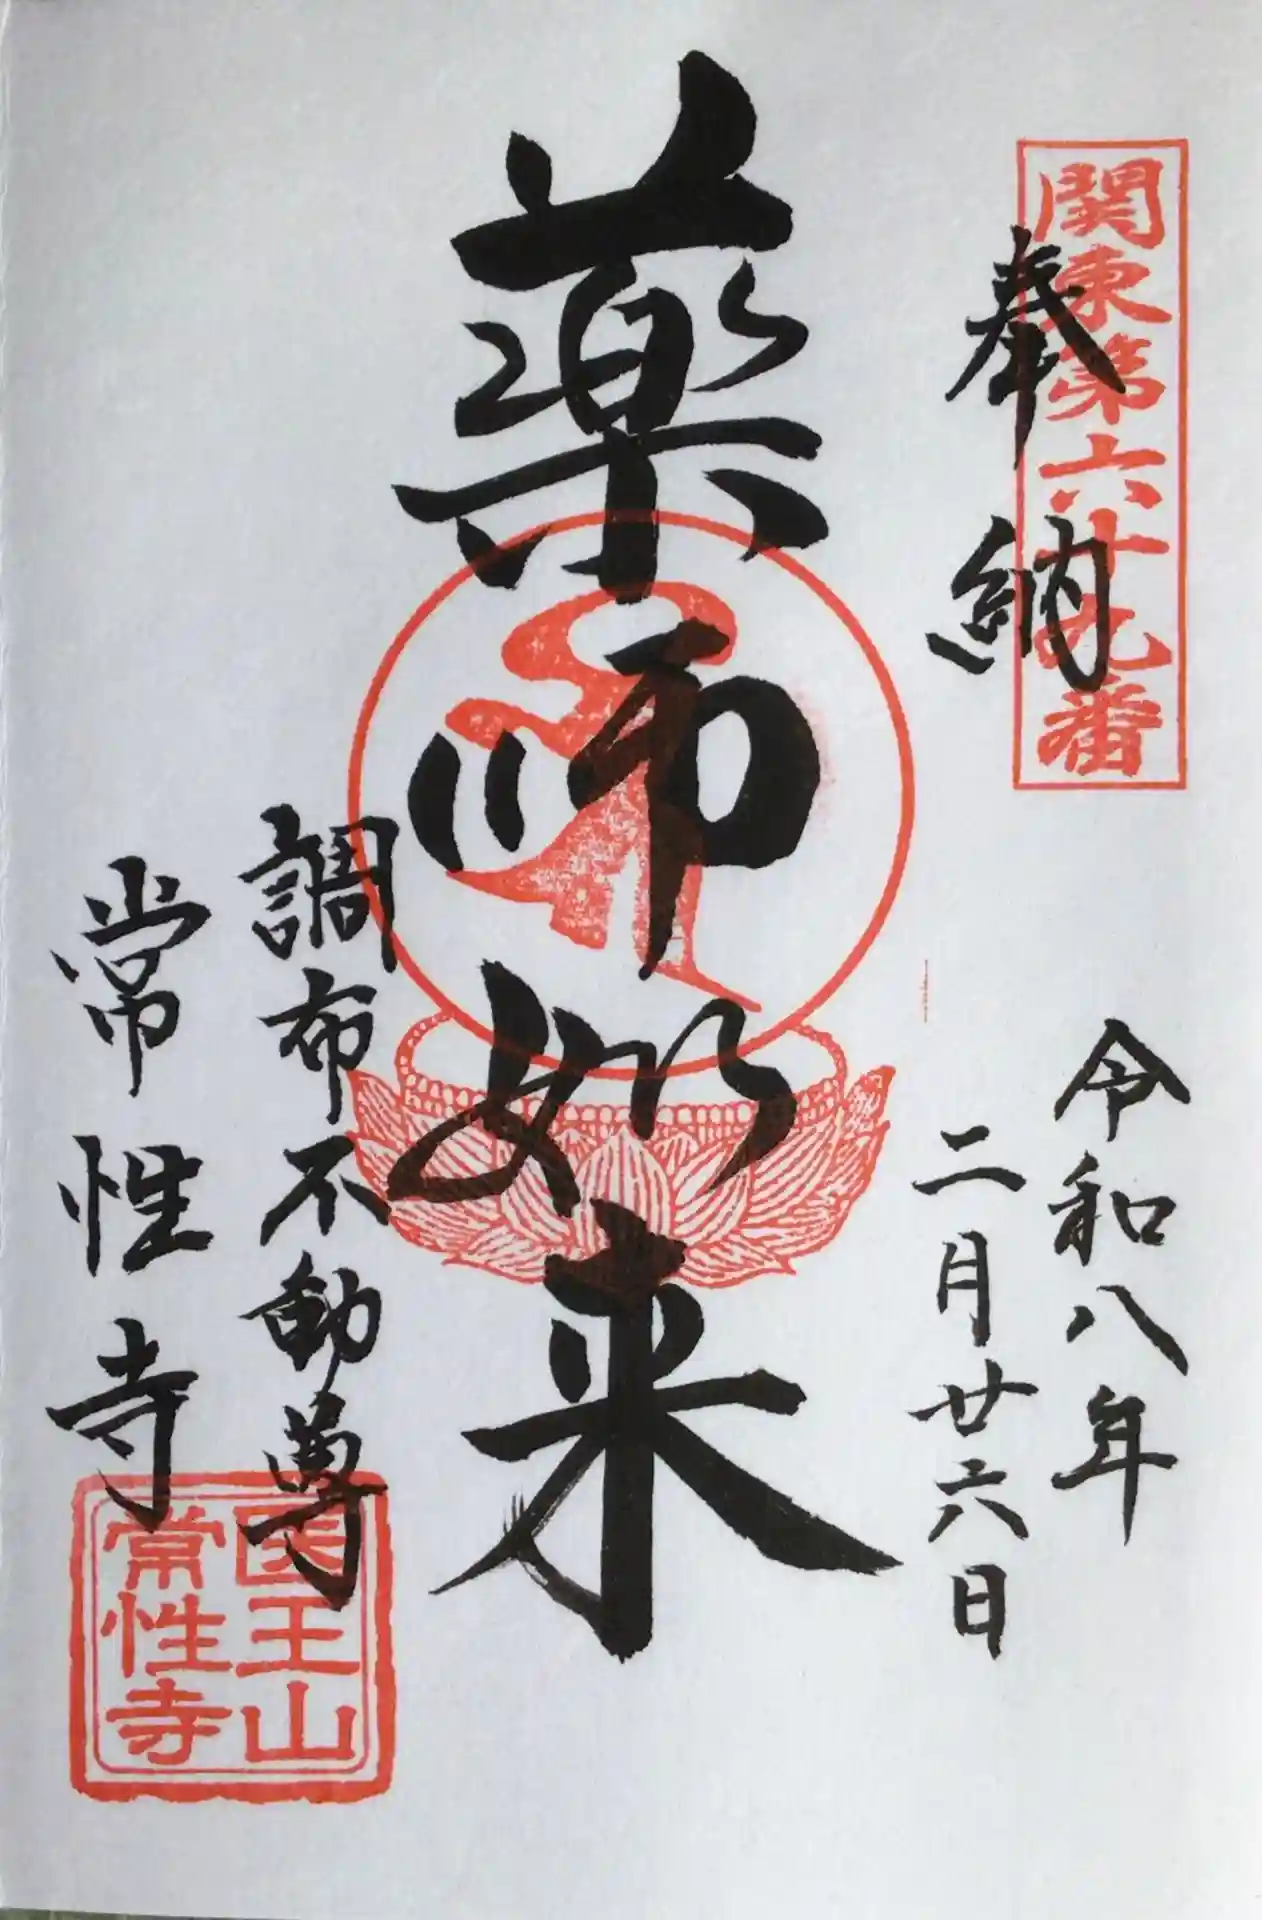 関東第六十九番
奉納
令和八年
二月廿六日
薬師如来
調布不動尊
常性寺
医王山
常性寺